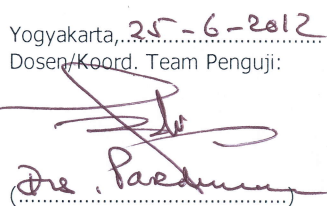 Yogyakarta, 25 - 6 - 2012
Dosen/Koord. Team Penguji:
(Drs.